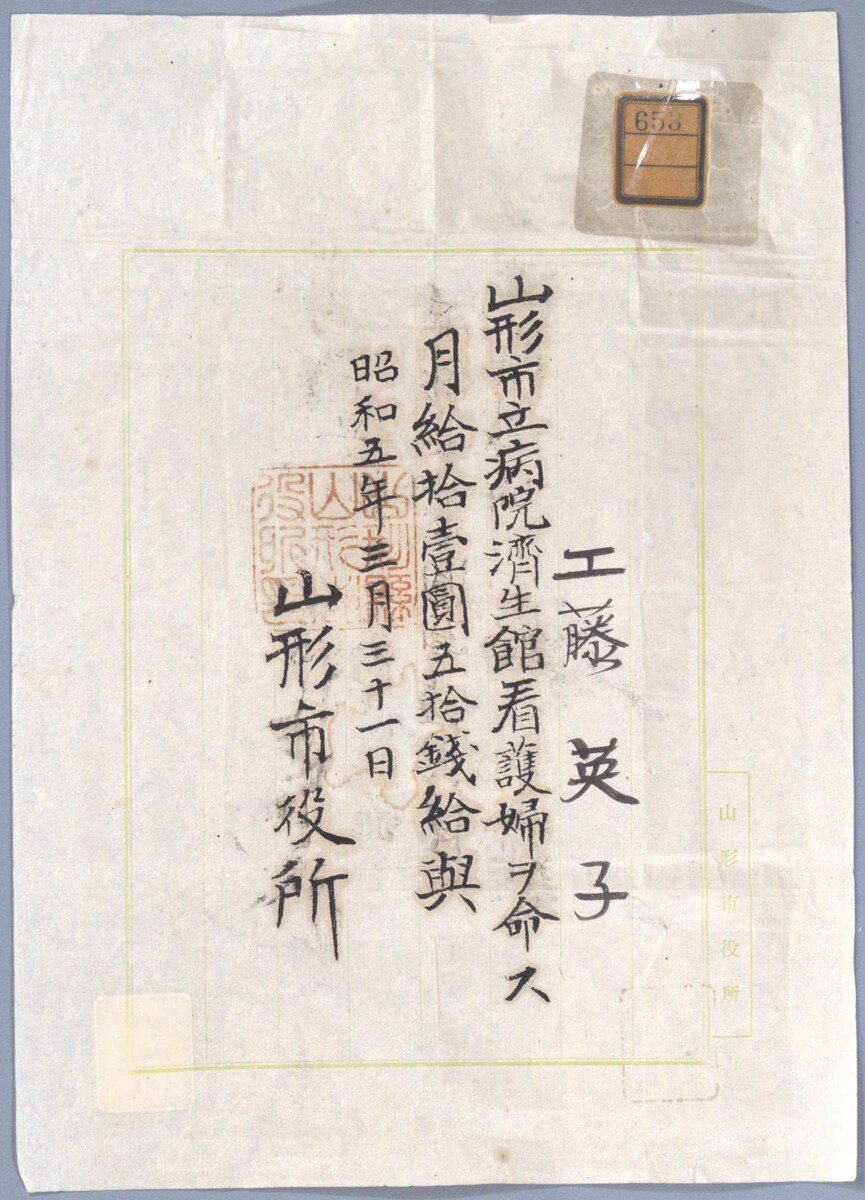 653
工藤英子
山形市立病院濟生館看護婦ヲ命ス
月給拾壹圓五拾錢給與
昭和五年三月三十一日
山形市役所
山形市役所